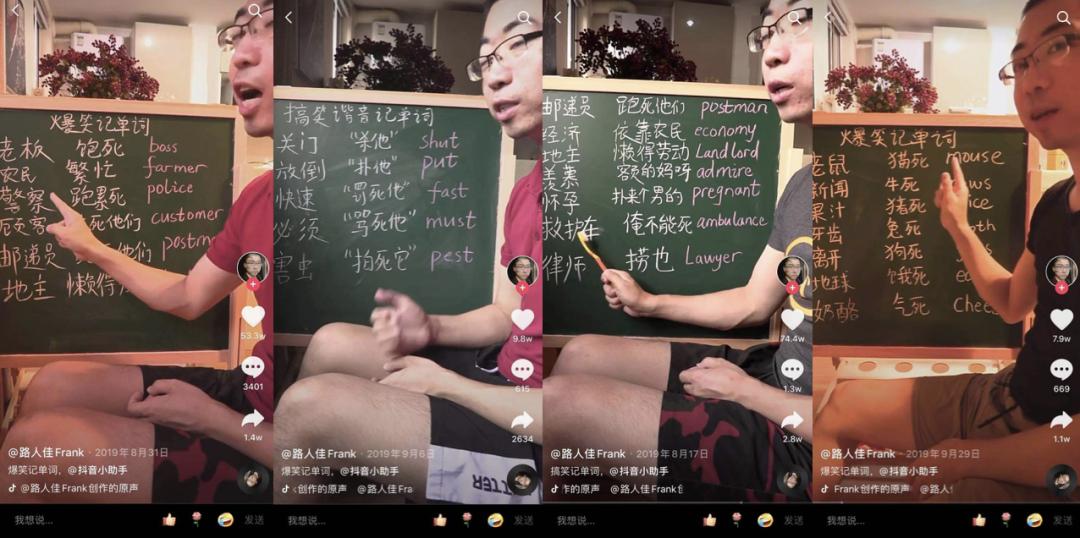 爆笑记单词
老板 饱死 boss
农民 繁忙 farmer
警察 跑累死 police
死他们 customer
邮递员 他们 postm
地主 懒得
53.3w
3401
1.4w
@路人佳Frank · 2019年8月31日
爆笑记单词，@抖音小助手
@路人佳Frank创作的原声
我想说... 发送
搞笑谐音记单词
关门 "杀他" shut
放倒 "扑他" put
快速 "罚死他" fast
必须 "骂死他" must
害虫 "拍死它" pest
9.8w
615
2634
@路人佳Frank · 2019年9月6日
爆笑记单词，@抖音小助手
创作的原声 @路人佳Fra
我想说... 发送
邮递员 跑死他们 postman
经济 依靠农民 economy
地主 懒得劳动 Landlord
羡慕 额的妈呀 admire
怀孕 扑某个男的 pregnant
救护车 俺不能死 ambulance
律师 捞也 Lawyer
74.4w
1.3w
2.8w
@路人佳Frank · 2019年8月17日
搞笑记单词，@抖音小助手
作的原声 @路人佳Frank
我想说... 发送
爆笑记单词
老鼠 猫死 mouse
新闻 牛死 ws
果汁 猪死 ice
牙齿 兔死 th
离开 狗死
地球 饿死
奶酪 气死 Chee
7.9w
669
1.1w
@路人佳Frank · 2019年9月29日
爆笑记单词，@抖音小助手
Frank创作的原声 @路人
我想说... 发送